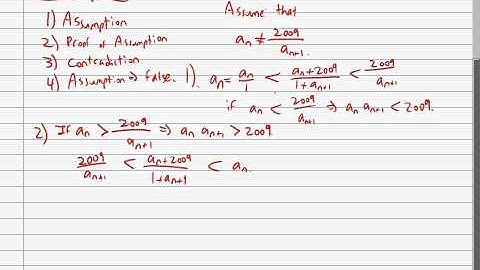 1) Assumption
2) Proof of Assumption
3) Contradiction
4) Assumption ⇒ false.
Assume that
aₙ ≠ 2009/aₙ₊₁.
1). aₙ = aₙ/1 < (aₙ+2009)/(1+aₙ₊₁) < 2009/aₙ₊₁
if aₙ < 2009/aₙ₊₁ ⇒ aₙ aₙ₊₁ < 2009.
2) If aₙ > 2009/aₙ₊₁ ⇒ aₙ aₙ₊₁ > 2009.
2009/aₙ₊₁ < (aₙ+2009)/(1+aₙ+1) < aₙ.